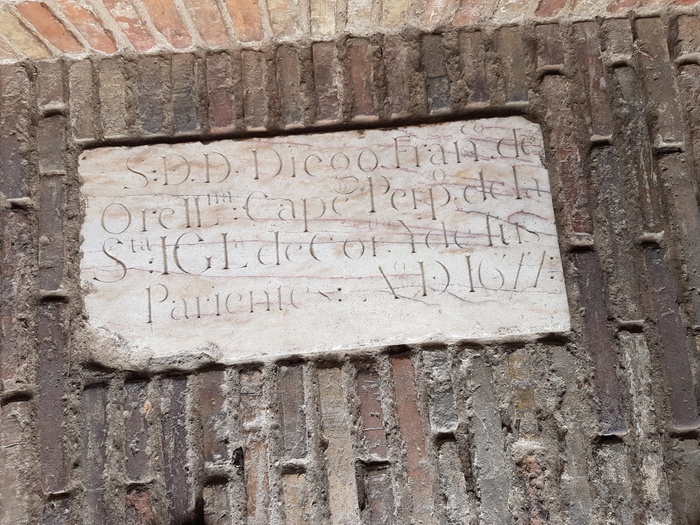 S:D.D. Diego.Franco. de
Orellna: Capn Perpo. de la
Sta: IGLa de Cor. Y de sus
Parientes: Ao D 1677: